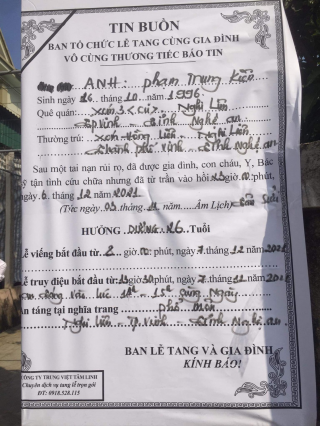 TIN BUỒN
BAN TỔ CHỨC LỄ TANG CÙNG GIA ĐÌNH
VÔ CÙNG THƯƠNG TIẾC BÁO TIN
ANH: Phạm Trung Kiên
Sinh ngày 26 tháng 10 năm 1996
Quê quán: Xóm 3 cũ Nghi Liên
TP Vinh - Tỉnh Nghệ an
Thường trú: Xóm Hồng Liên - Nghi Liên
Thành phố Vinh - Tỉnh Nghệ an
Sau một tai nạn rủi ro, đã được gia đình, con cháu, Y, Bác
sỹ tận tình cứu chữa nhưng đã từ trần vào hồi giờ phút,
ngày 6 tháng 12 năm 2021
(Tức ngày 03 tháng 11 năm Âm Lịch)
HƯỞNG DƯƠNG 26 Tuổi
Lễ viếng bắt đầu từ 2 giờ phút, ngày 7 tháng 12 năm 2021
Lễ truy điệu bắt đầu từ giờ 30 phút, ngày 7 tháng 12 năm 2021
lúc cùng ngày
An táng tại nghĩa trang
Nghi Liên - TP Vinh - Tỉnh Nghệ an
BAN LỄ TANG VÀ GIA ĐÌNH
KÍNH BÁO!
CÔNG TY TRUNG VIỆT TÂM LINH
Chuyên dịch vụ tang lễ trọn gói
ĐT: 0918.528.115